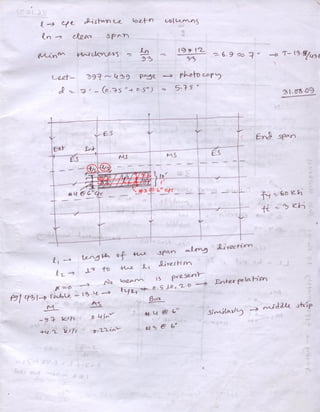 l → c/c distance betn columns
ln → clear span
Minm thickness = ln/33 = 19*12/33 = 6.9 ∞ 7"
Lect- 397~439 page → photocopy
d = 7" - (0.75"+0.5") = 5.75"
31.03.09
ES
End span
Ext Int
ES MS MS ES
#4@6"c/c
fy = 60 ksi
fc = 3 ksi
l1 → length of the span along direction
l2 → to the l1 direction
α=0 → No beam is present
Pg/431→ table - 13.4 → l2/l1 → 0.5, 1.0, 2.0 → Interpolation
M AS Bar
-9.7 k'/1' 0.41in² #4@6"
Similarly → middle strip
+4.2 k'/1' 0.22in² #3@6"